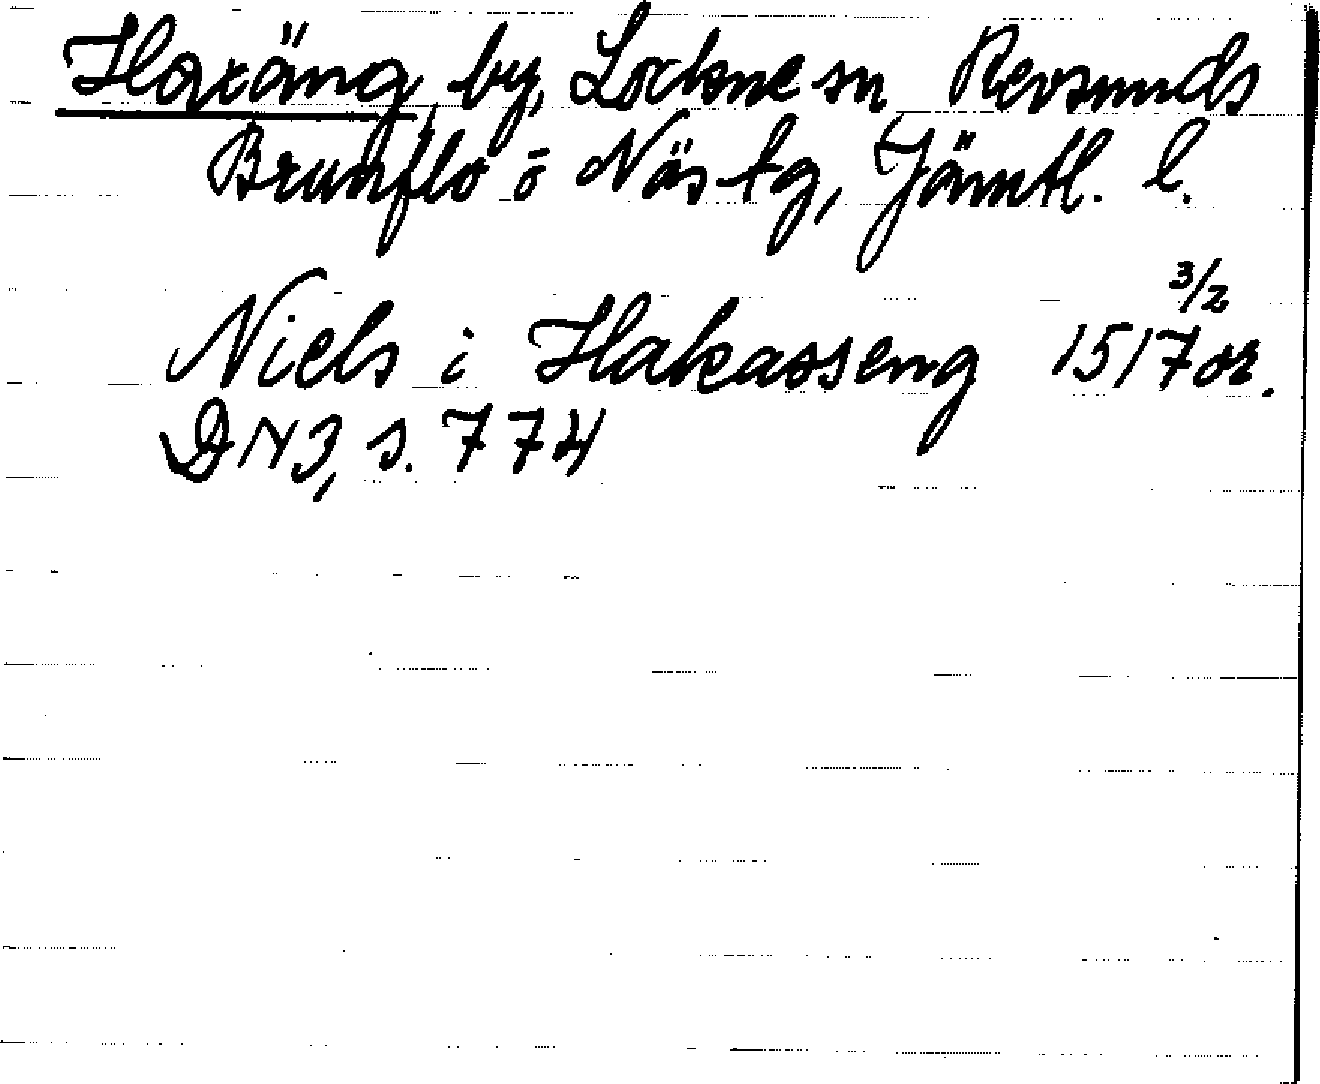 Haxäng, by, Lockne sn Revsunds
Brunflo o Näs tg, Jämtl. l.
3/2
Niels i Hakasseng 1517 or.
DN 3, s. 774